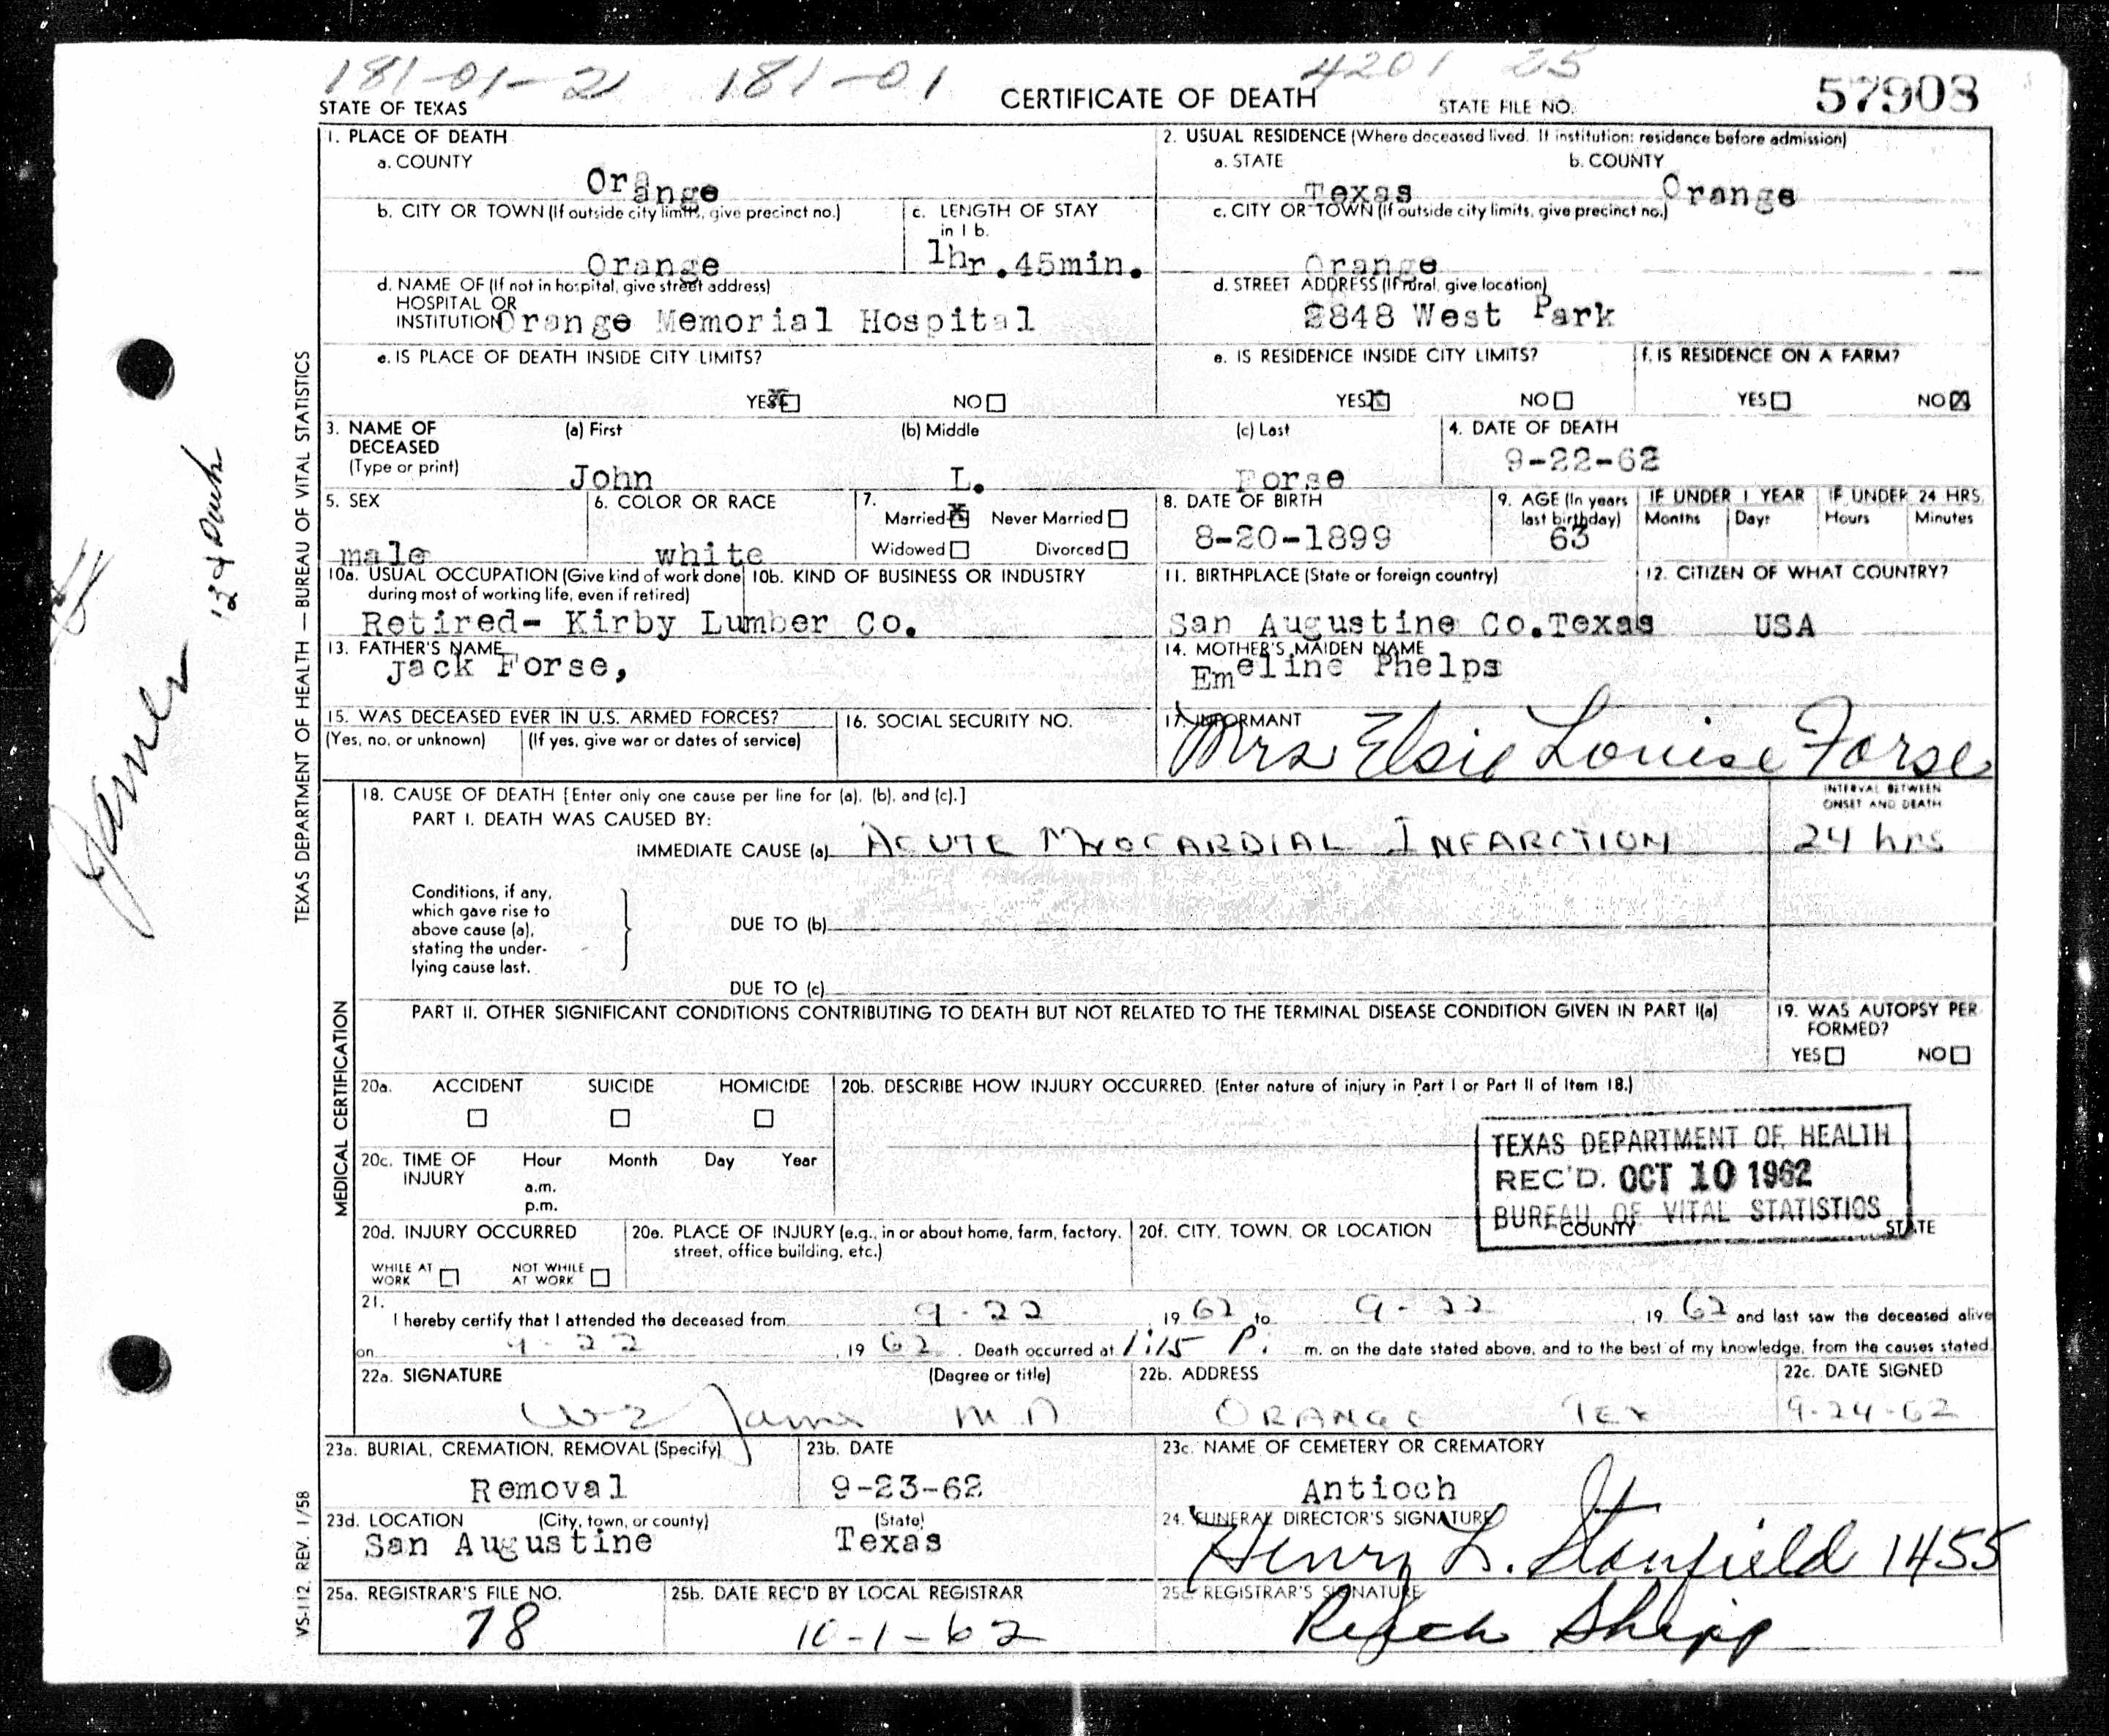 181-01-21 181-01 4201 25
STATE OF TEXAS CERTIFICATE OF DEATH STATE FILE NO. 57903
1. PLACE OF DEATH
a. COUNTY
Orange
2. USUAL RESIDENCE (Where deceased lived. If institution: residence before admission)
a. STATE b. COUNTY
Texas Orange
b. CITY OR TOWN (If outside city limits, give precinct no.)
Orange
c. LENGTH OF STAY
in 1 b.
1hr.45min.
c. CITY OR TOWN (If outside city limits, give precinct no.)
Orange
d. NAME OF (If not in hospital, give street address)
HOSPITAL OR
INSTITUTION Orange Memorial Hospital
d. STREET ADDRESS (If rural, give location)
2848 West Park
e. IS PLACE OF DEATH INSIDE CITY LIMITS?
YES X NO
e. IS RESIDENCE INSIDE CITY LIMITS?
YES X NO
f. IS RESIDENCE ON A FARM?
YES NO X
3. NAME OF
DECEASED
(Type or print)
(a) First (b) Middle (c) Last
John L. Forse
4. DATE OF DEATH
9-22-62
5. SEX
male
6. COLOR OR RACE
white
7.
Married X Never Married
Widowed Divorced
8. DATE OF BIRTH
8-20-1899
9. AGE (In years
last birthday)
63
IF UNDER 1 YEAR
Months Days
IF UNDER 24 HRS.
Hours Minutes
10a. USUAL OCCUPATION (Give kind of work done
during most of working life, even if retired)
10b. KIND OF BUSINESS OR INDUSTRY
Retired- Kirby Lumber Co.
11. BIRTHPLACE (State or foreign country)
San Augustine Co.Texas
12. CITIZEN OF WHAT COUNTRY?
USA
13. FATHER'S NAME
Jack Forse,
14. MOTHER'S MAIDEN NAME
Emeline Phelps
15. WAS DECEASED EVER IN U.S. ARMED FORCES?
(Yes, no, or unknown) (If yes, give war or dates of service)
16. SOCIAL SECURITY NO.
17. INFORMANT
Mrs Elsie Louise Forse
MEDICAL CERTIFICATION
18. CAUSE OF DEATH [Enter only one cause per line for (a), (b), and (c).]
PART I. DEATH WAS CAUSED BY:
IMMEDIATE CAUSE (a) ACUTE MYOCARDIAL INFARCTION
INTERVAL BETWEEN
ONSET AND DEATH
24 hrs
Conditions, if any,
which gave rise to
above cause (a),
stating the under-
lying cause last.
DUE TO (b)
DUE TO (c)
PART II. OTHER SIGNIFICANT CONDITIONS CONTRIBUTING TO DEATH BUT NOT RELATED TO THE TERMINAL DISEASE CONDITION GIVEN IN PART I(a)
19. WAS AUTOPSY PER
FORMED?
YES NO
20a. ACCIDENT SUICIDE HOMICIDE
20b. DESCRIBE HOW INJURY OCCURRED. (Enter nature of injury in Part I or Part II of Item 18.)
20c. TIME OF
INJURY
Hour Month Day Year
a.m.
p.m.
TEXAS DEPARTMENT OF HEALTH
REC'D. OCT 10 1962
BUREAU OF VITAL STATISTICS
20d. INJURY OCCURRED
WHILE AT
WORK
NOT WHILE
AT WORK
20e. PLACE OF INJURY (e.g., in or about home, farm, factory,
street, office building, etc.)
20f. CITY, TOWN, OR LOCATION COUNTY STATE
21.
I hereby certify that I attended the deceased from 9-22, 1962 to 9-22, 1962 and last saw the deceased alive
on 9-22, 1962. Death occurred at 1:15 P. m. on the date stated above, and to the best of my knowledge, from the causes stated.
22a. SIGNATURE (Degree or title)
James M.D
22b. ADDRESS
ORANGE TEX
22c. DATE SIGNED
9-24-62
23a. BURIAL, CREMATION, REMOVAL (Specify)
Removal
23b. DATE
9-23-62
23c. NAME OF CEMETERY OR CREMATORY
Antioch
23d. LOCATION (City, town, or county) (State)
San Augustine Texas
24. FUNERAL DIRECTOR'S SIGNATURE
Henry L. Stanfield 1455
25a. REGISTRAR'S FILE NO.
78
25b. DATE REC'D BY LOCAL REGISTRAR
10-1-62
25c. REGISTRAR'S SIGNATURE
Shipp
TEXAS DEPARTMENT OF HEALTH — BUREAU OF VITAL STATISTICS
VS-112, REV. 1/58
James